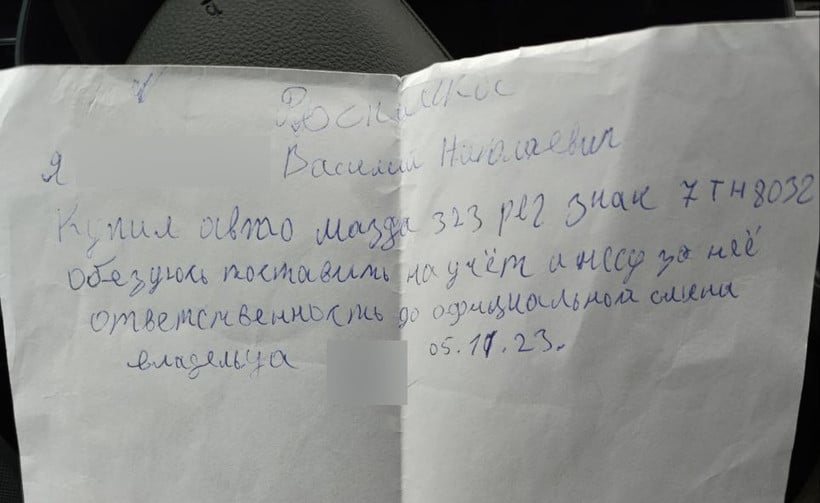 Роспииска
Я Василий Николаевич
Купил авто мазда 323 рег знак 7ТН8032
обезуюсь поставить на учёт и несу за неё
ответственность до официальной смена
владельца 05.11.23.